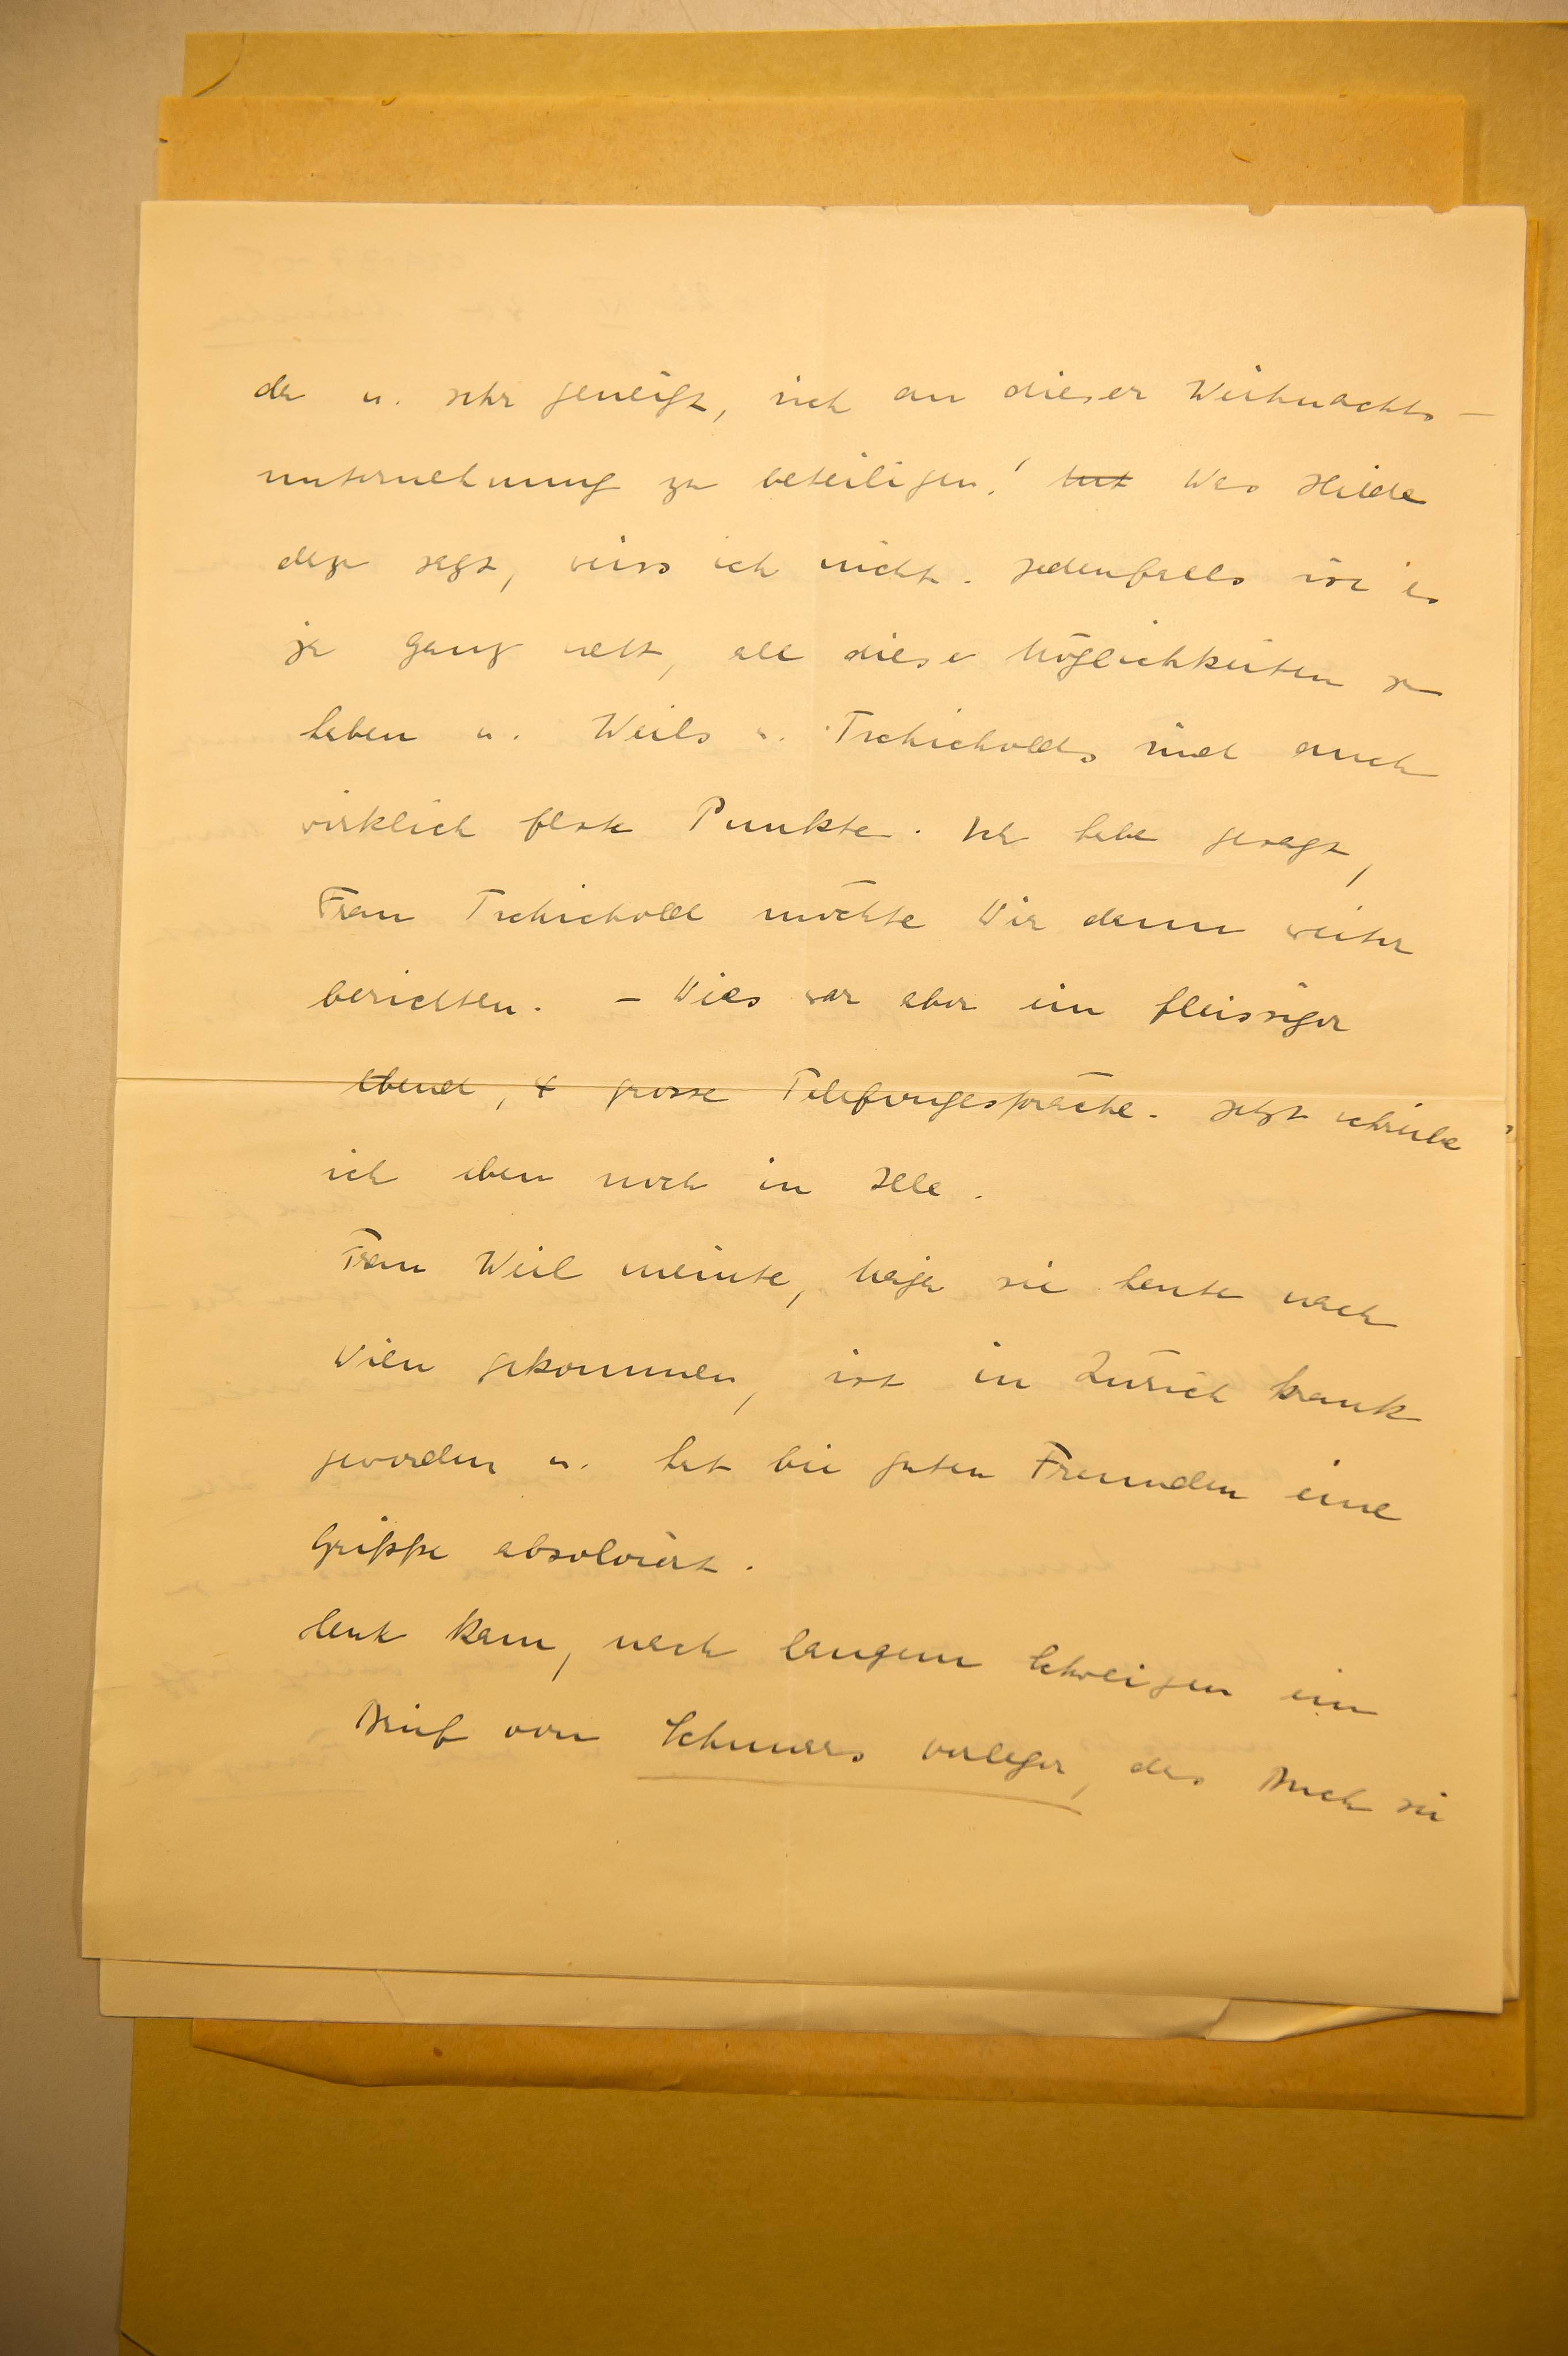 da u. sehr geneigt, sich an dieser Weihnachts-
unternehmung zu beteiligen! Was Hilde
dazu sagt, weiss ich nicht. Jedenfalls ist es
ja ganz nett, all diese Möglichkeiten zu
haben u. Weils u. Tschicholds sind auch
wirklich feste Punkte. Ich habe gesagt,
Frau Tschichold möchte Dir dann weiter
berichten. – Dies war aber ein fleissiger
Abend, 4 grosse Telefongespräche. Jetzt schreibe
ich eben noch in Eile.
Frau Weil meinte, Maja sei heute nach
Wien gekommen, ist in Zürich krank
geworden u. hat bei guten Freunden eine
Grippe absolviert.
Heute kam, nach langem Schweigen ein
Brief von Verleger, das Buch sei